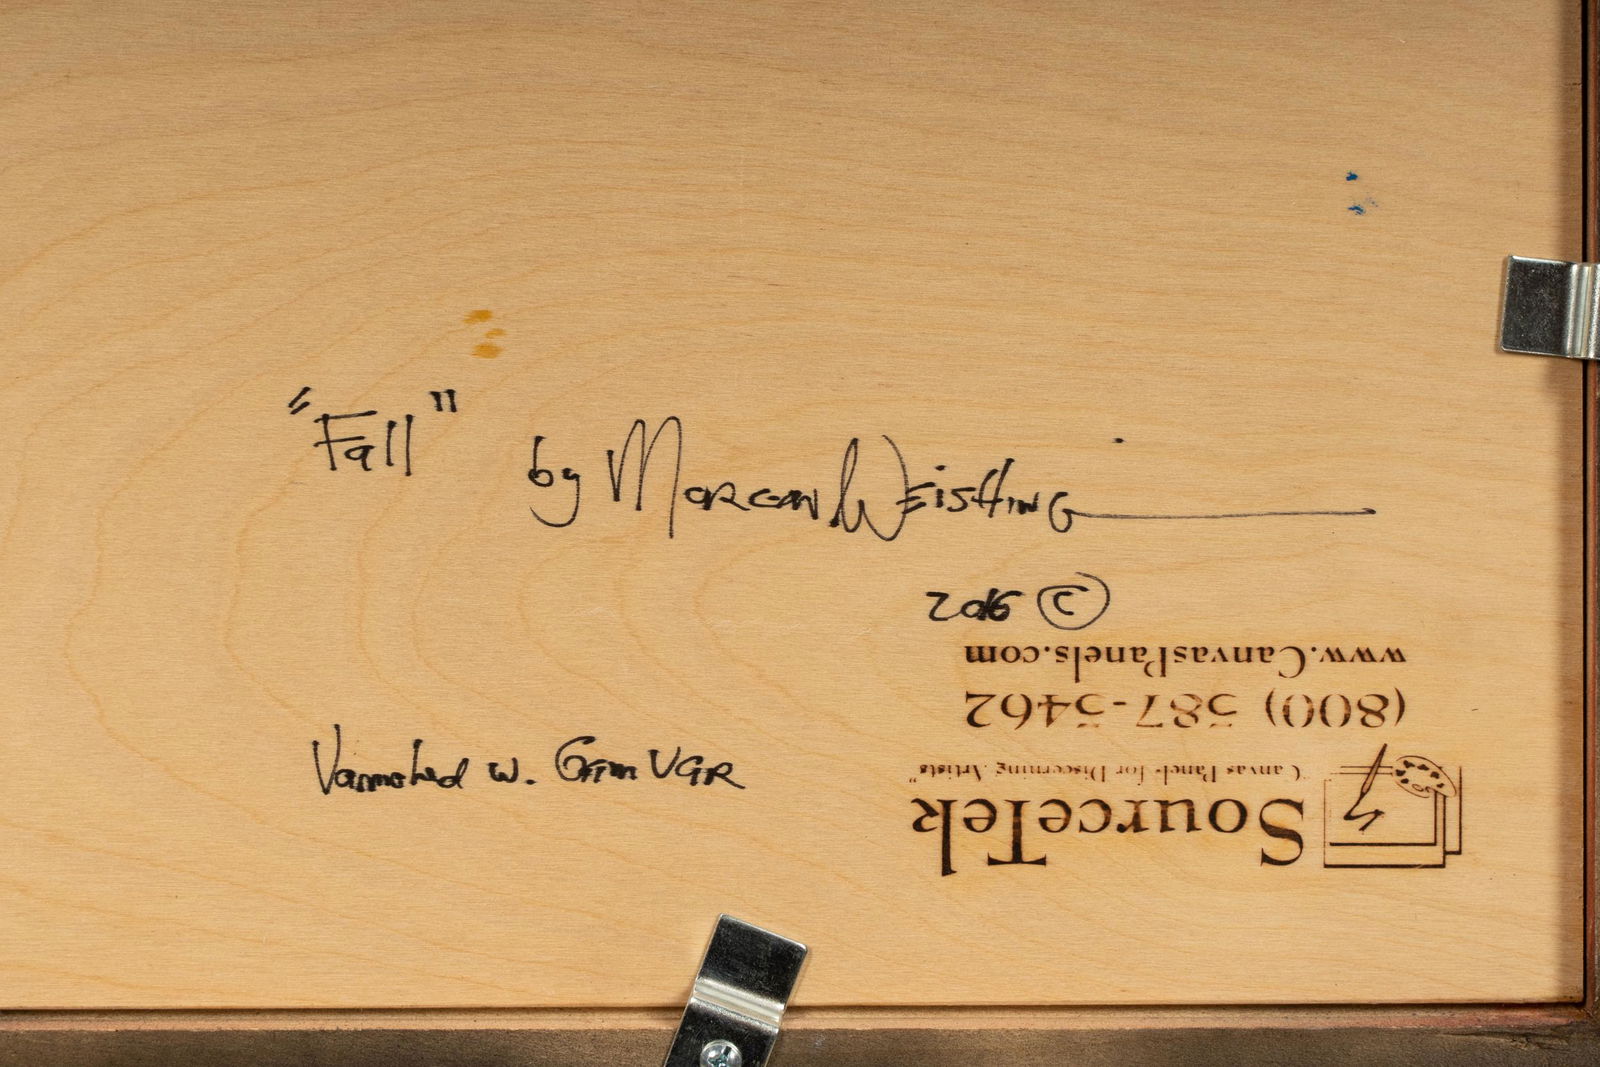 "Fall" by Morgan Weistling
2016 ©
Varnished w. Gam VGR
SourceTek
"Canvas Panels for Discerning Artists"
(800) 587-5462
www.CanvasPanels.com